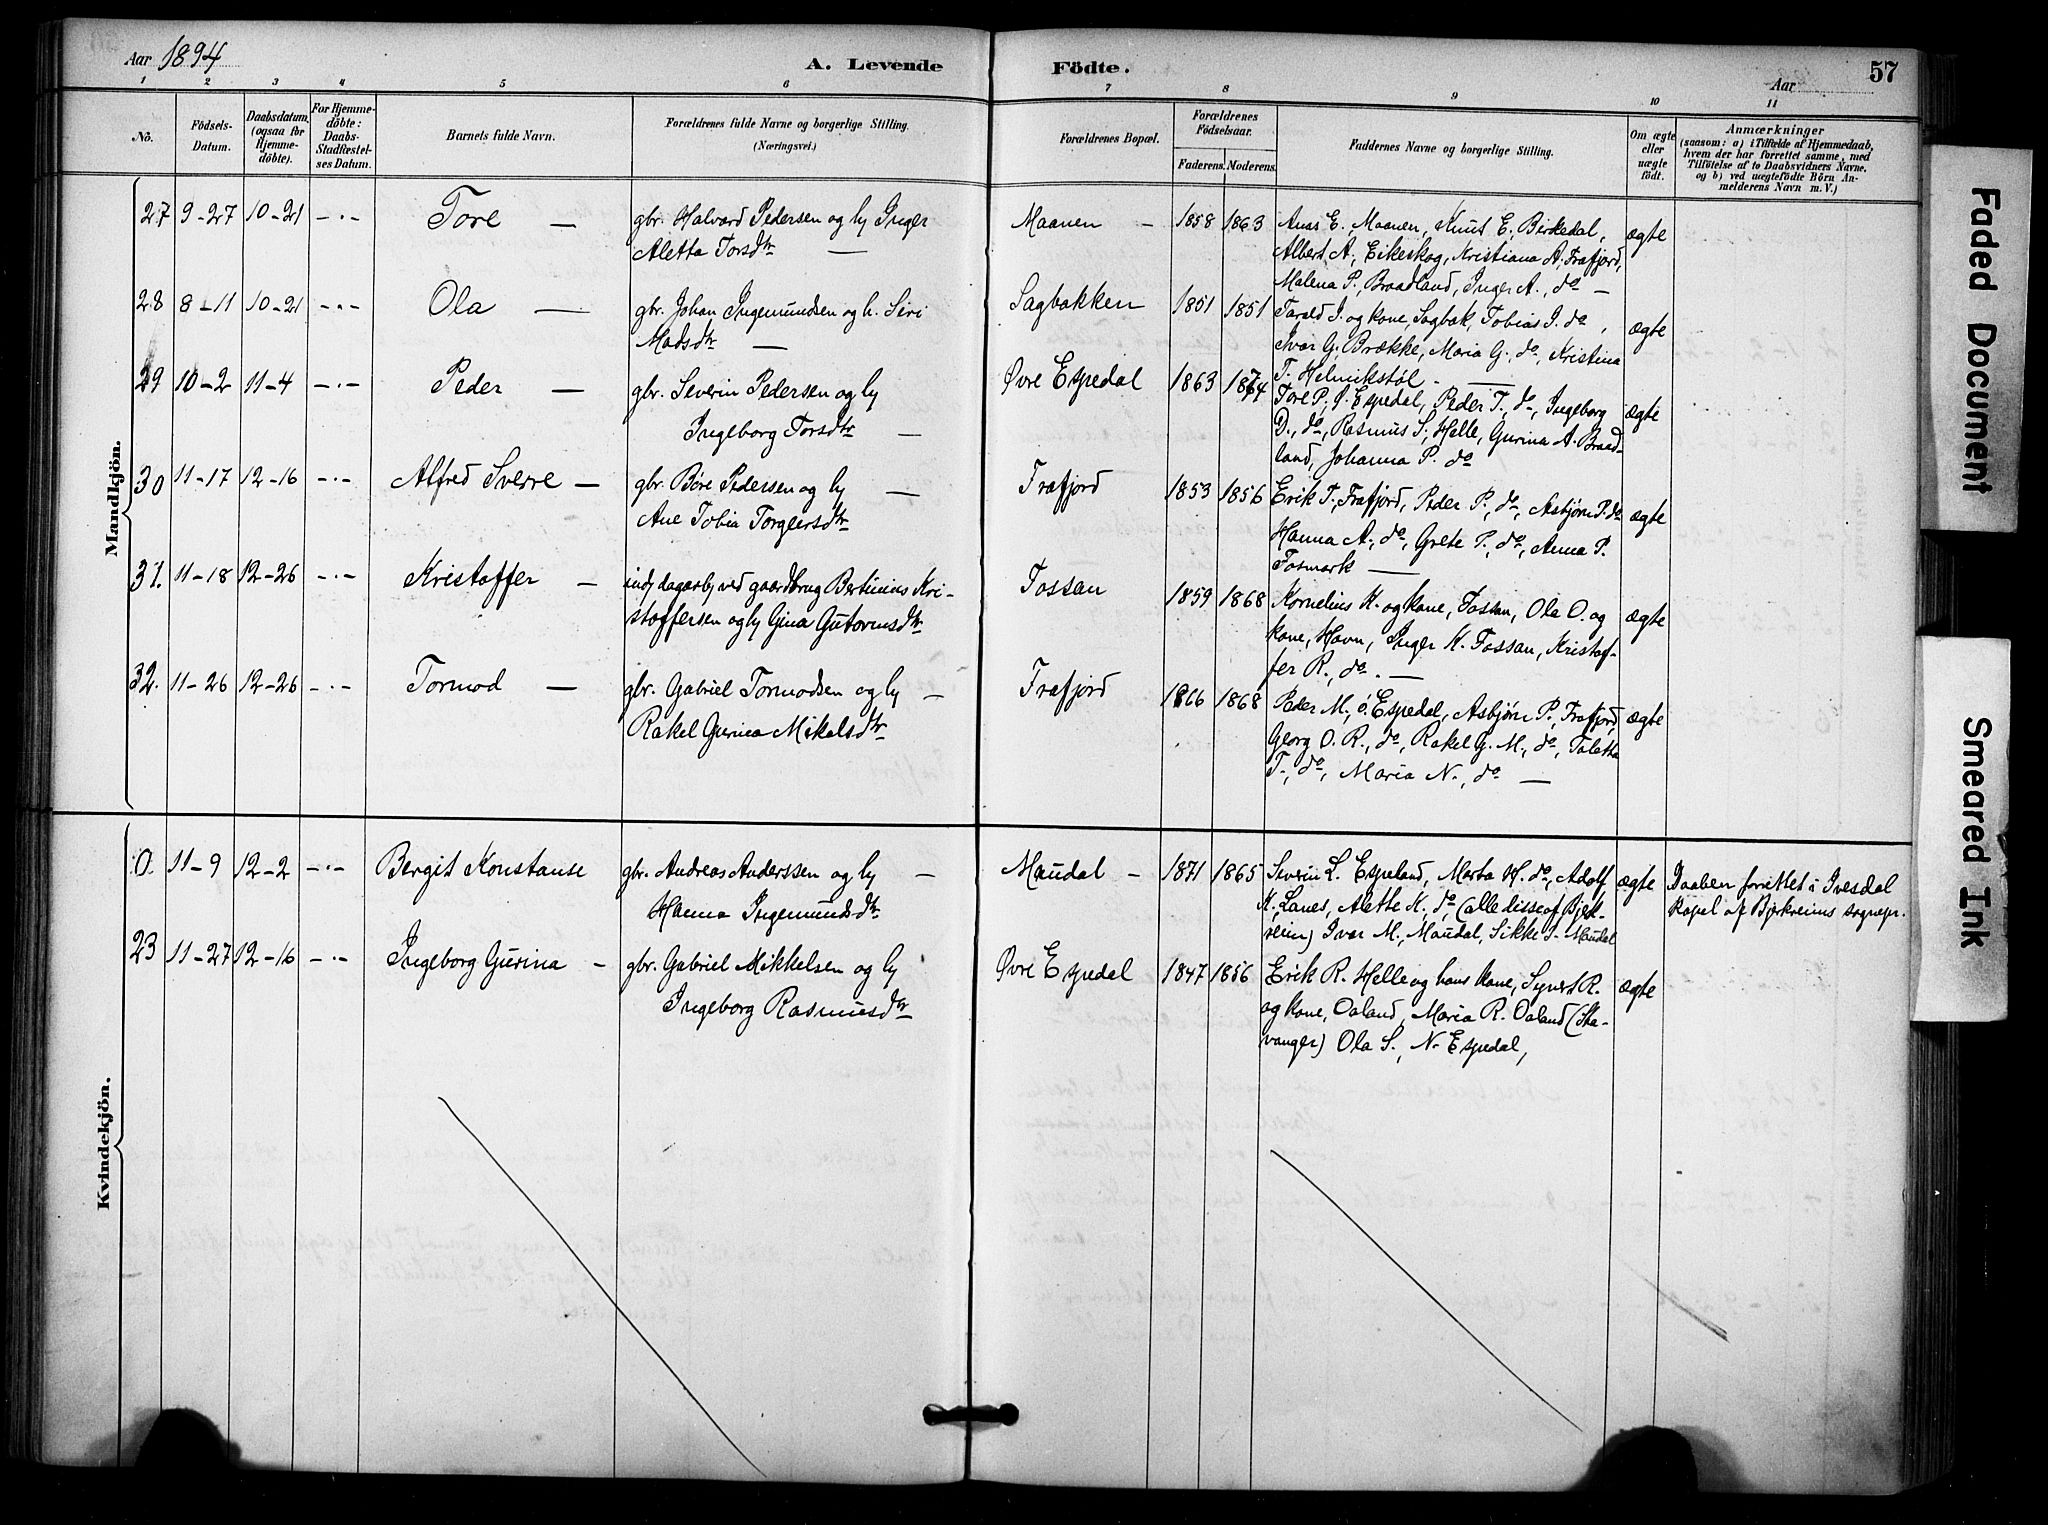 Aar 1894
A. Levende Födte.
Aar
57
1 2 3 4 5 6 7 8 9 10 11
No.
Födsels-
Datum.
Daabsdatum
(ogsaa for
Hjemme-
döbte).
For Hjemme-
döbte:
Daabs-
Stadfæstel-
ses Datum.
Barnets fulde Navn.
Forældrenes fulde Navne og borgerlige Stilling.
(Næringsvei.)
Forældrenes Bopæl.
Forældrenes
Födselsaar.
Faderens. Moderens.
Faddernes Navne og borgerlige Stilling.
Om ægte
eller
uægte
födt.
Anmærkninger
(saasom: a) i Tilfælde af Hjemmedaab,
hvem der har forrettet samme, med
Tilföielse af to Daabsvidners Navne,
og b) ved uægtefödte Börn An-
melderens Navn m. V.)
Mandkjön.
27 9-27 10-21 -"- Tore — gbr. Halvard Pedersen og hy Inger
Aletta Torsdtr —
Maanen — 1858 1863 Anas E. Maanen, Knut E. Birkedal,
Albert A. Eikeskog, Kristiana A. Frafjord,
Malena P. Braadland, Inger A., do —
ægte
28 8-11 10-21 -"- Ola — gbr. Johan Ingemundsen og h. Siri
Madsdtr —
Sagbakken 1851 1851 Tarald I. og kone, Sagbak, Tobias I. do,
Ivar G. Brække, Maria G., do, Kristina
T. Helmikstøl. —
ægte
29 10-2 11-4 -"- Peder — gbr. Severin Pedersen og hy
Ingeborg Torsdtr —
Øvre Espedal 1863 1874 Tore P. Ø. Espedal, Peder T., do, Ingeborg
D., do, Rasmus S. Helle, Gurina A. Braad-
land, Johanna P. do
ægte
30 11-17 12-16 -"- Alfred Sverre — gbr. Børe Pedersen og hy —
Ane Tobia Torgersdtr
Frafjord 1853 1856 Erik T. Frafjord, Peder P., do, Asbjørn P. do
Hanna A., do, Grete P., do, Anna P.
Fosmark —
ægte
31. 11-18 12-26 -"- Kristoffer — indy dagarb. ved gaardbrug Bertinius Kri-
stoffersen og hy Gina Gutormsdtr
Fossan 1859 1868 Kornelius K. og kone, Fossan, Ola O. og
kone, Havn, Inger K. Fossan, Kristof-
fer R., do. —
ægte
32. 11-26 12-26 -"- Tormod — gbr. Gabriel Tormodsen og hy —
Rakel Gurina Mikelsdtr
Frafjord 1866 1868 Peder M., ø. Espedal, Asbjørn P., Frafjord,
Georg O. R., do, Rakel G. M., do, Taletta
T., do, Maria N., do —
ægte
Kvindekjön.
0. 11-9 12-2 -"- Bergit Konstanse gbr. Andreas Anderssen og hy —
Hanna Ingemundsdtr
Maudal — 1871 1865 Severin L. Espeland, Marta H. do, Adolf
K. Lanes, Alette K., do, (alle disse af Bjerk-
reim) Ivar M., Maudal, Sikke I. Maudal
ægte
Daaben forrettet i Ivesdal
Kapel af Bjerkreims sognepr.
23 11-27 12-16 -"- Ingeborg Gurina — gbr. Gabriel Mikkelsen og hy
Ingeborg Rasmusdtr
Øvre Espedal 1847 1856 Erik R. Helle og hans kone, Syvert R.
og kone, Oaland, Maria R. Oaland (Sta-
vanger) Ola S., N. Espedal,
ægte
Faded Document
Smeared Ink